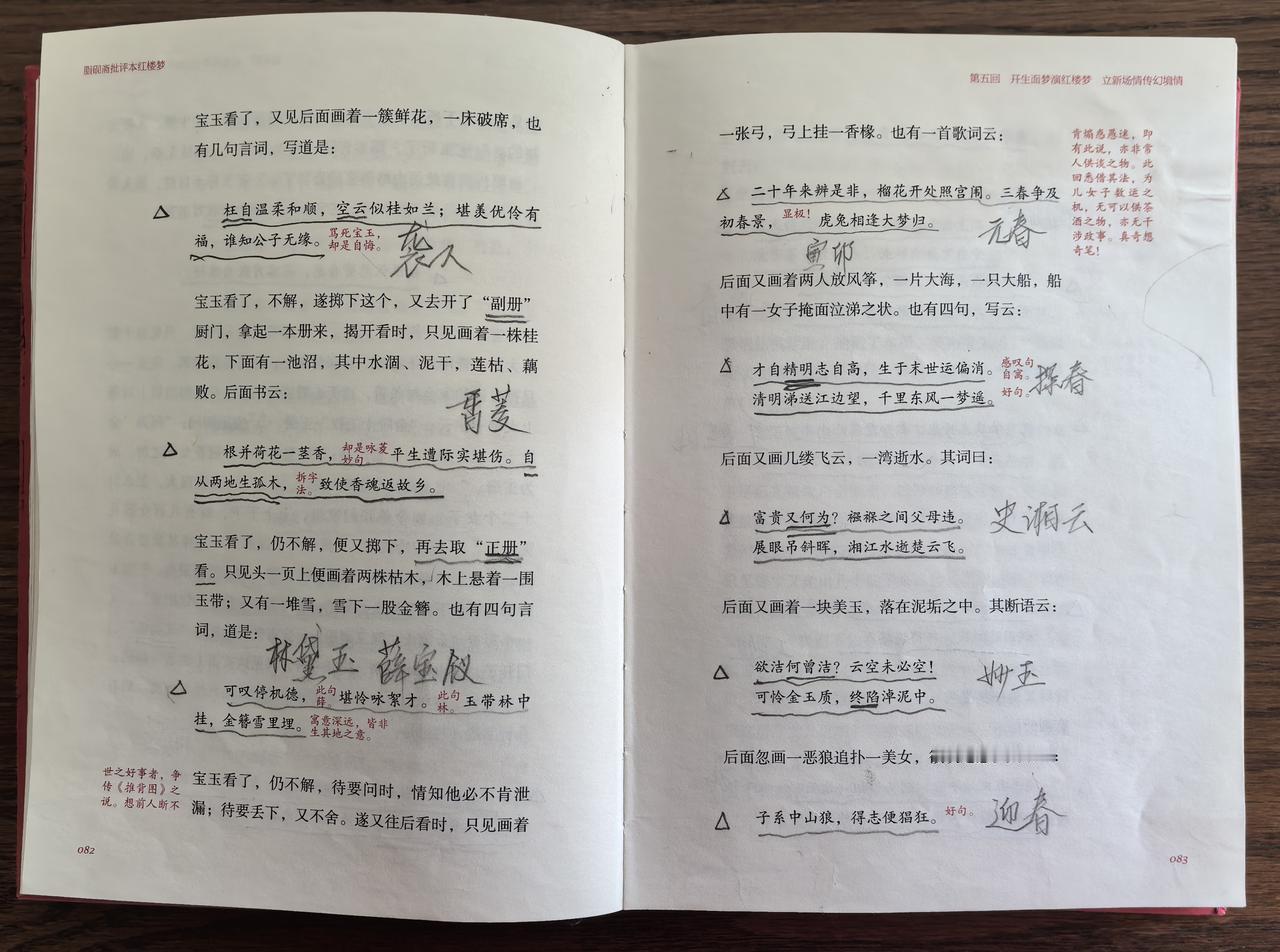 脂砚斋批评本红楼梦
宝玉看了，又见后面画着一簇鲜花，一床破席，也
有几句言词，写道是：
枉自温柔和顺，空云似桂如兰；堪羡优伶有
福，谁知公子无缘。骂死宝玉，却是自悔。
袭人
宝玉看了，不解，遂掷下这个，又去开了“副册”
厨门，拿起一本册来，揭开看时，只见画着一株桂
花，下面有一池沼，其中水涸、泥干，莲枯、藕
败。后面书云：
香菱
根并荷花一茎香，却是咏菱妙句。平生遭际实堪伤。自
从两地生孤木，拆字法。致使香魂返故乡。
宝玉看了，仍不解，便又掷下，再去取“正册”
看。只见头一页上便画着两株枯木，木上悬着一围
玉带；又有一堆雪，雪下一股金簪。也有四句言
词，道是：
林黛玉 薛宝钗
可叹停机德，此句薛。堪怜咏絮才。此句林。玉带林中
挂，金簪雪里埋。寓意深远，皆非生其地之意。
世之好事者，争
传《推背图》之
说。想前人断不
宝玉看了，仍不解，待要问时，情知他必不肯泄
漏；待要丢下，又不舍。遂又往后看时，只见画着
082
第五回 开生面梦演红楼梦 立新场情传幻境情
一张弓，弓上挂一香橼。也有一首歌词云：
肯煽惑愚迷，即
有此说，亦非常
人供谈之物。此
回悉借其法，为
儿女子数运之
机，无可以供茶
酒之物，亦无干
涉政事。真奇想
奇笔！
二十年来辨是非，榴花开处照宫闱。三春争及
初春景，显极！虎兔相逢大梦归。
元春
寅卯
后面又画着两人放风筝，一片大海，一只大船，船
中有一女子掩面泣涕之状。也有四句，写云：
才自精明志自高，生于末世运偏消。感叹句自寓。
清明涕送江边望，千里东风一梦遥。好句。
探春
后面又画几缕飞云，一湾逝水。其词曰：
富贵又何为？襁褓之间父母违。
史湘云
展眼吊斜晖，湘江水逝楚云飞。
后面又画着一块美玉，落在泥垢之中。其断语云：
欲洁何曾洁？云空未必空！
妙玉
可怜金玉质，终陷淖泥中。
后面忽画一恶狼追扑一美女，
子系中山狼，得志便猖狂。好句。
迎春
083